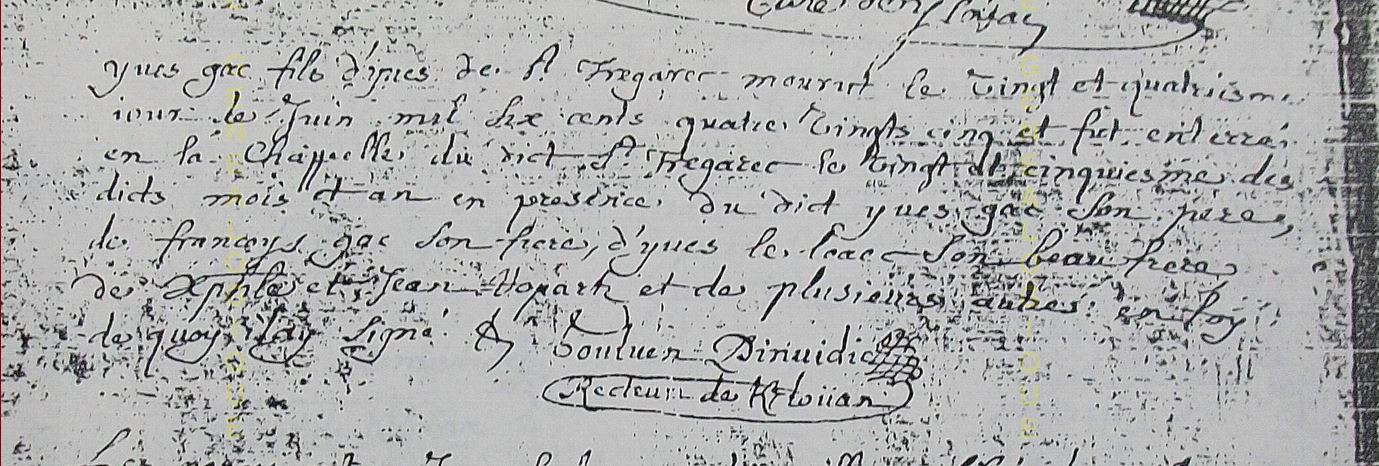 yues gac fils d'yues de St Tregarec mourut le vingt et quatriesme
iour de Juin mil six cents quatre vingts cinq et fut enterré
en la chappelle du dict St Tregarec le vingt et cinquiesme des
dicts mois et an en presence du dict yues gac son pere,
de françoys gac son frere, d'yues le leac son beau frere
de et Jean et de plusieurs autres en foy
de quoy i'ay signé Goulven Dinuidic
Recteur de Kerlouan